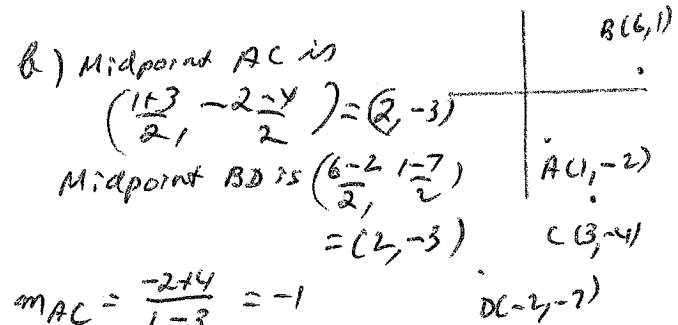 b) Midpoint AC is
(1+3/2, -2-4/2) = (2, -3)
Midpoint BD is (6-2/2, 1-7/2)
= (2, -3)
m_AC = -2+4/1-3 = -1
B(6,1)
A(1,-2)
C(3,-4)
D(-2,-7)